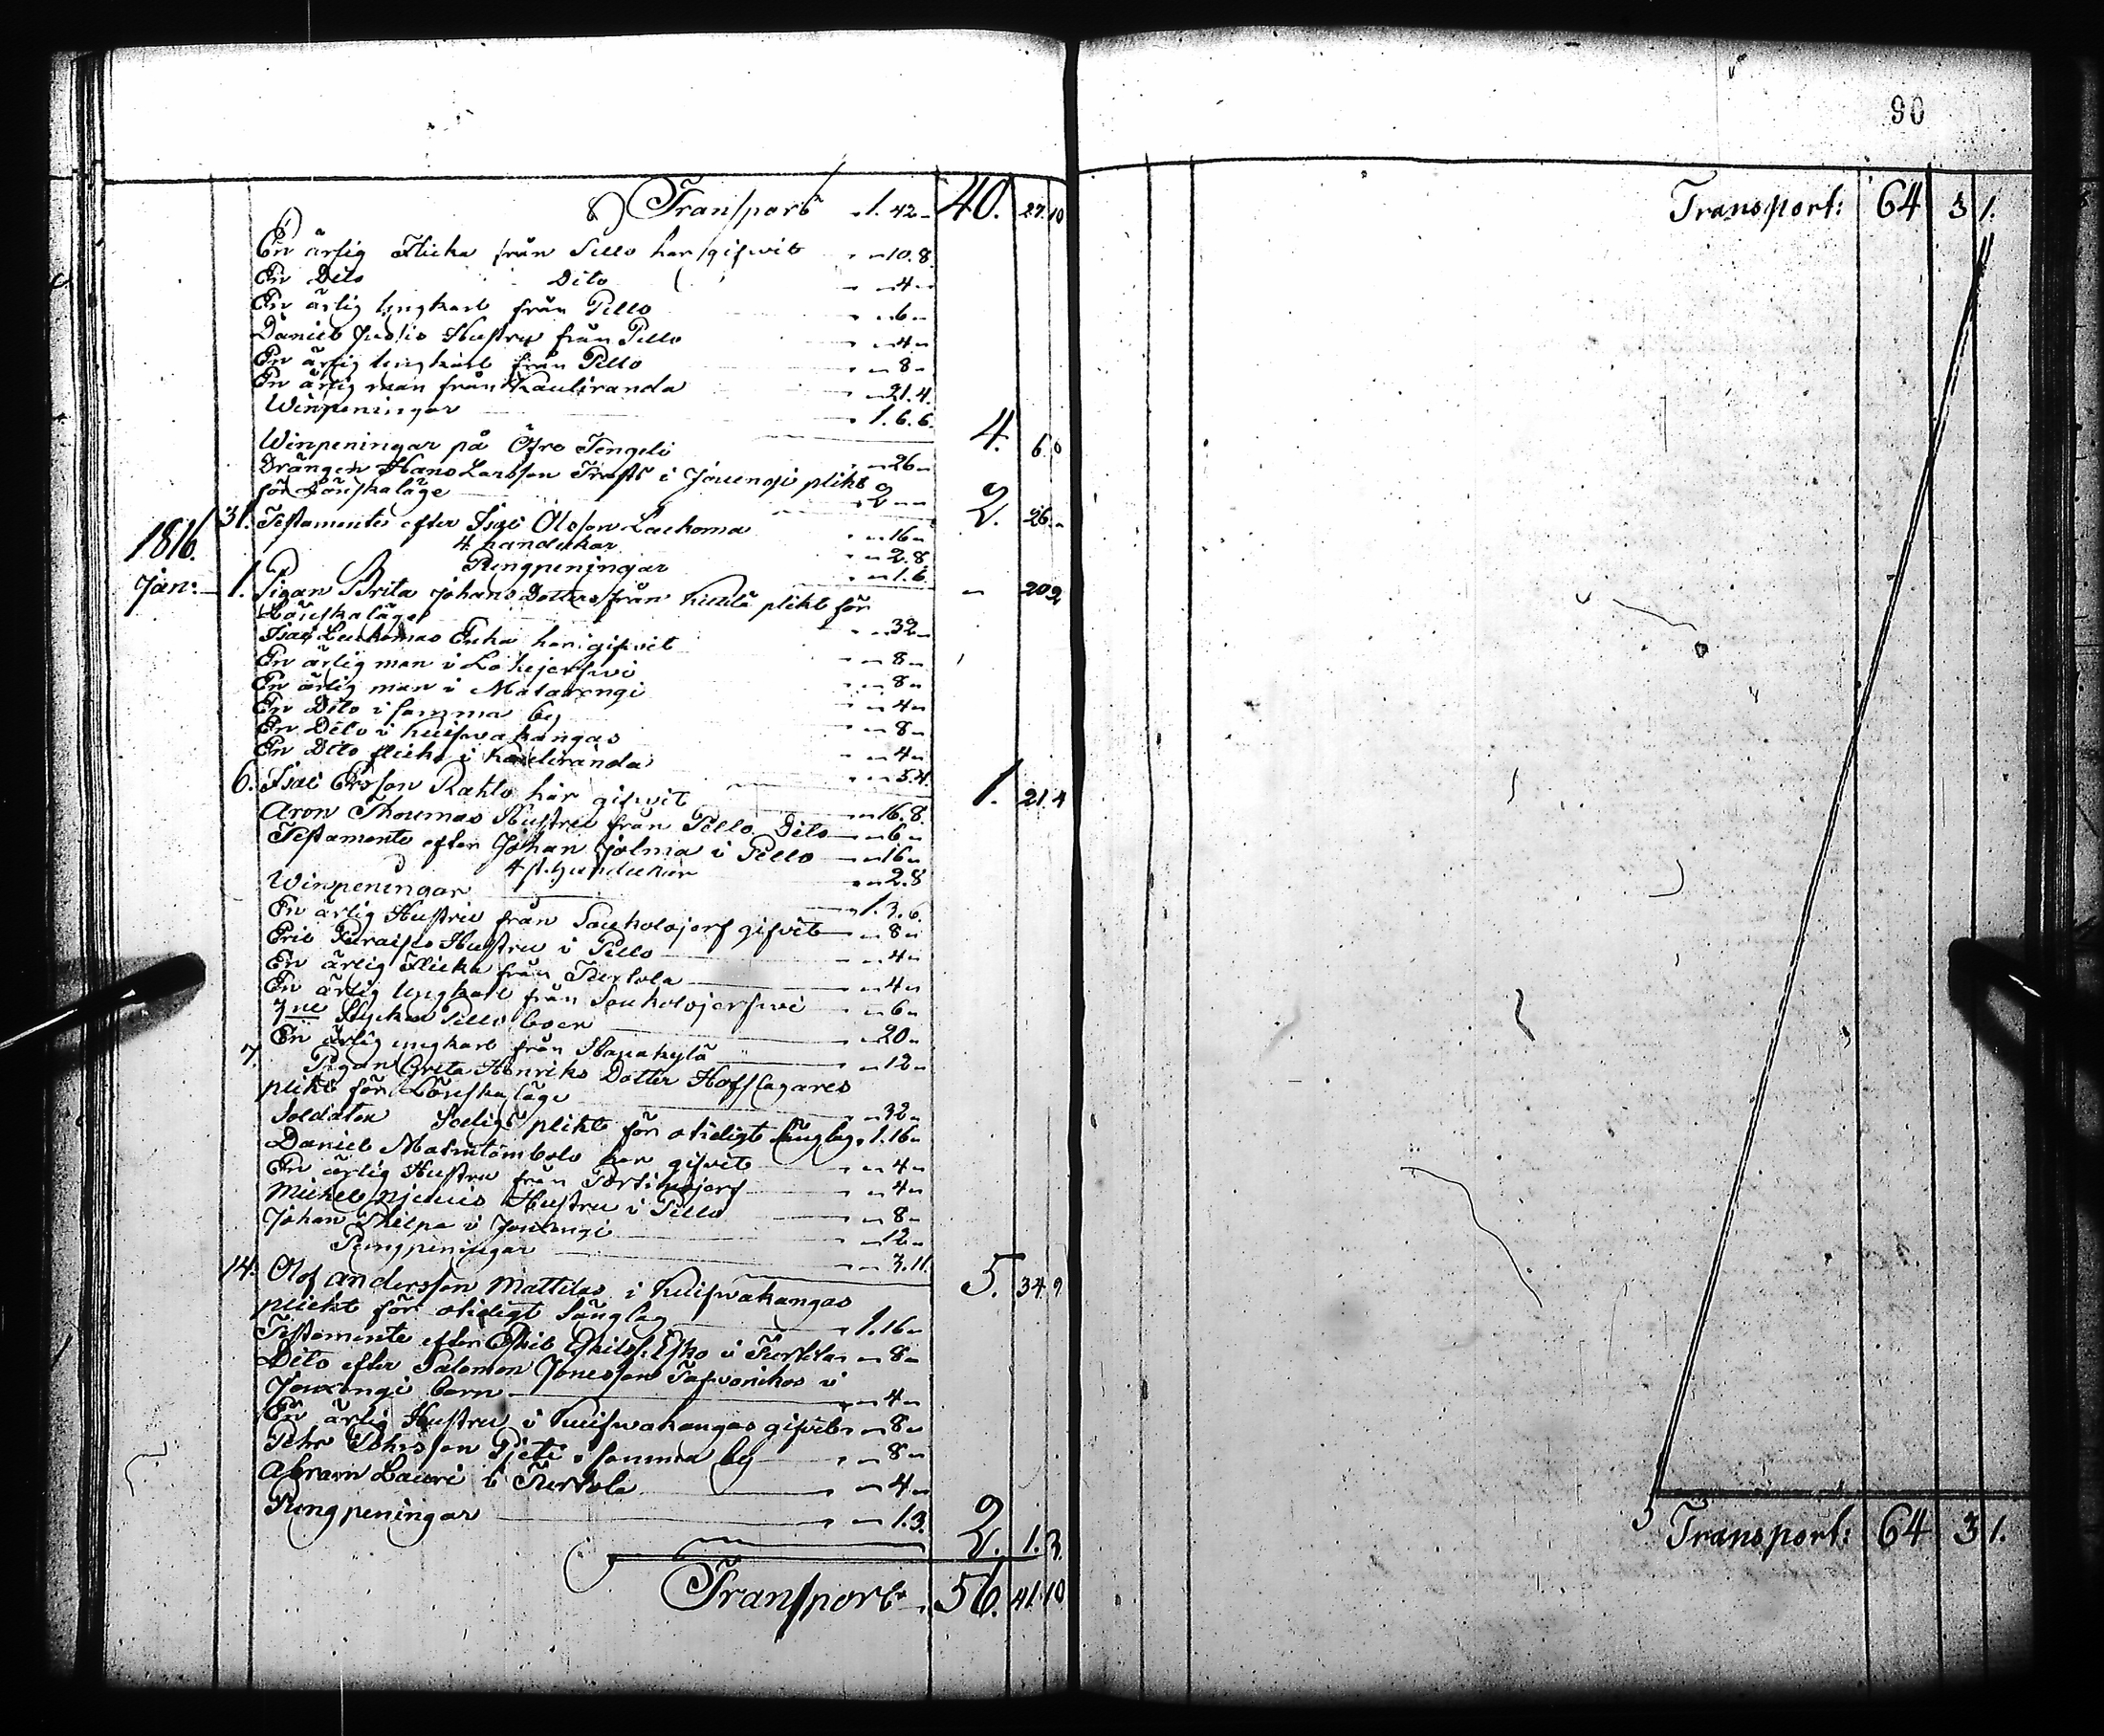 Transport 1. 42 40. 27. 10
En ärlig Flicka från Pello har gifwit 10. 8.
En Dito Dito 4
En ärlig Ungkarl från Pello 6
Daniel Hustru från Pello 4
En ärlig Ungkarl från Pello 8
En ärlig man från Kauliranda 21. 4.
Winpeningar 1. 6. 6. 4. 6. 6
Winpeningar på Öfre Tengeli 26
Drängen Hans Larsson i Jouxengi plikt
för Löniskaläge 2 2. 26
31. Testamente efter Isac Olofson Laehoma 16
1816. 4 handukar 2. 8
Pungpeningar 1. 6. 20 2
Jan: 1. Pigan Brita Johans Dotter från Kittilä plikt för
Löniskaläge 32
Isac Enka har gifwit 8
En ärlig man i Lohijerfwi 8
En ärlig man i Matarengi 4
En Dito i samma by 8
En Dito i Kuifwakangas 4
En Dito flicka i Kauliranda 5. 4.
1. 21. 4
6. Isac Ersson Rahto har gifwit 16. 8.
Aron Thoumas Hustru från Pello Dito 6
Testamente efter Johan Jolma i Pello 16
4 st. handukar 2. 8
Winpeningar 1. 3. 6.
En ärlig Hustru från Soukolojerf gifwit 8
Eric Hustru i Pello 4
En ärlig Flicka från Turtola 4
En ärlig Ungkarl från Soukolojerfwi 6
Stycken Pello boer 20
En ärlig ungkarl från Haapakylä 12
7. Pigan Greta Henriks Dotter
plikt för Löniskaläge 32
Soldaten Sedig plikt för otidigt sänglag 1. 16
Daniel har gifwit 4
En ärlig Hustru från Portimojerf 4
Michel Hustru i Pello 8
Johan i Jouxengi 12
Pungpeningar 3. 11. 5. 34. 9
14. Olof Andersson Mattilas i Kuifwakangas
plickt för otidigt Sänglag 1. 16
Testamente efter Eskil Eskilss. Esko i Turtola 8
Dito efter Salomon Jonesson i
Jouxengi barn 4
En ärlig Hustru i Kuifwakangas gifwit 8
Pehr Pehrsson Pjeti i samma by 8
Abram Lauri i Turtola 4
Pungpeningar 1. 3. 2. 1. 3.
Transport 56. 41. 10.
90
Transport: 64 3 1.
Transport: 64 3 1.